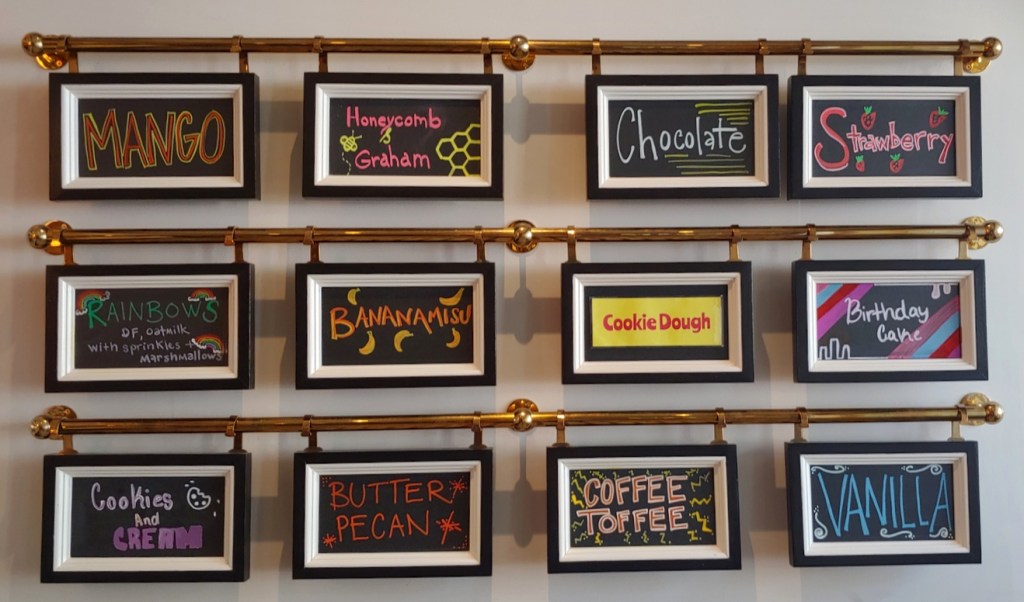 MANGO
Honeycomb
&
Graham
Chocolate
Strawberry
RAINBOWS
DF, oatmilk
with sprinkles +
Marshmallows
BANANAMISU
Cookie Dough
Birthday
Cake
Cookies
And
CREAM
BUTTER
PECAN
COFFEE
TOFFEE
VANILLA